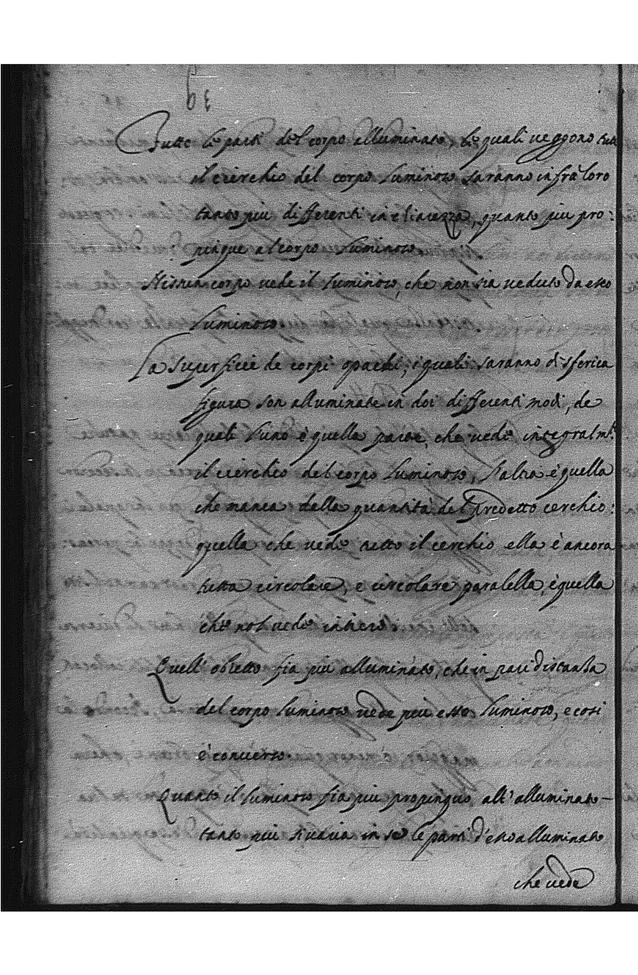 39
Tutte le parti del corpo alluminato, le quali veggono tutt
al cierchio del corpo luminoso saranno infra loro
tanto più differenti in chiarezza, quanto piu pro:
pinque al corpo luminoso.
Nissun corpo vede il luminoso, che non sia veduto da esso
luminoso.
La superficie de corpi opachi, i quali saranno di sferica
figura son alluminate in doi differenti modi, de
quali l'uno è quella parte, che vede integralmte
il cierchio del corpo luminoso, l'altra è quella
che manca della quantità del predetto cerchio:
quella che vede netto il cerchio ella è ancora
tutta circolare, e circolare paralella, è quella
che nol vede intiero
Quell' obietto fia più alluminato, che in pari distanza
del corpo luminoso vede più esso luminoso, e cosi
è converso.
Quanto il luminoso fia piu propinquo all' alluminato
tanto piu si varia in se le parti d'esso alluminato
che vede